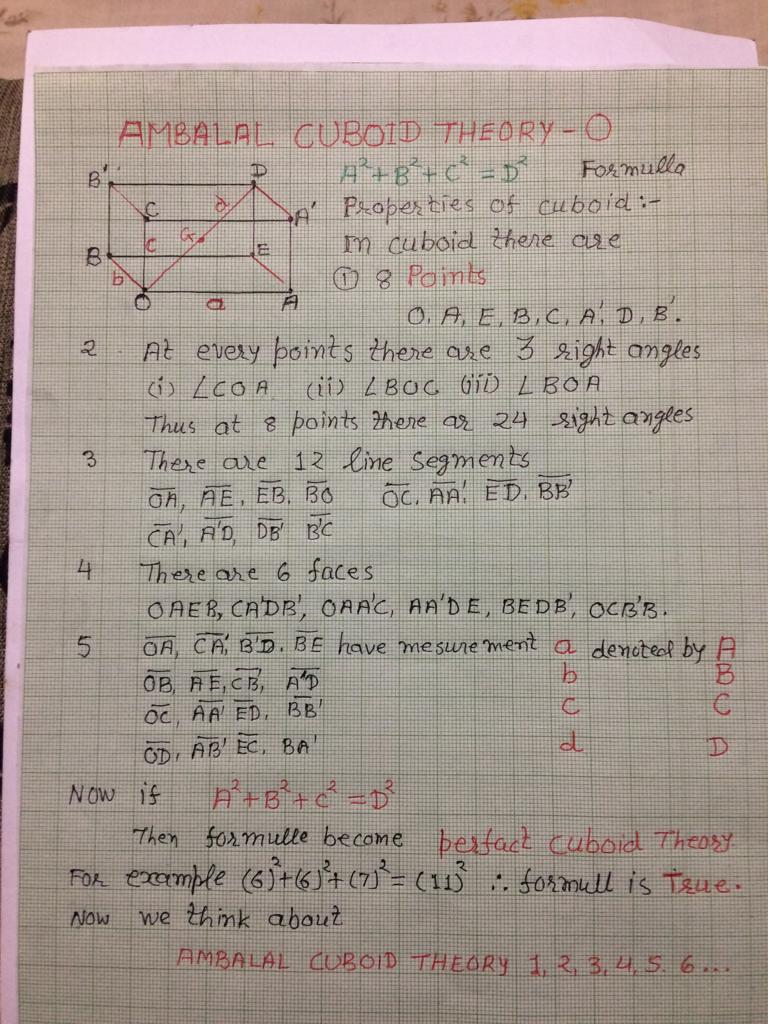 AMBALAL CUBOID THEORY - O
A²+B²+C² = D² Formulla
Properties of cuboid :-
In cuboid there are
① 8 Points
O, A, E, B, C, A', D, B'.
B' D
C d A'
G
B c E
b
O a A
2 At every points there are 3 right angles
(i) ∠COA (ii) ∠BOC (iii) ∠BOA
Thus at 8 points there ar 24 right angles
3 There are 12 line segments
O̅A̅, A̅E̅, E̅B̅, B̅O̅ O̅C̅, A̅A̅', E̅D̅, B̅B̅'
C̅A̅', A̅'D̅, D̅B̅' B̅'C̅
4 There are 6 faces
OAEB, CA'DB', OAA'C, AA'DE, BEDB', OCB'B.
5 O̅A̅, C̅A̅', B̅'D̅, B̅E̅ have mesurement a denoted by A
O̅B̅, A̅E̅, C̅B̅, A̅'D̅ b B
O̅C̅, A̅A̅' E̅D̅, B̅B̅' c C
O̅D̅, A̅B̅' E̅C̅, BA' d D
Now if A²+B²+C² = D²
Then formulle become perfact cuboid Theory
For example (6)²+(6)²+(7)² = (11)² ∴ formull is True.
Now we think about
AMBALAL CUBOID THEORY 1, 2, 3, 4, 5. 6 ...